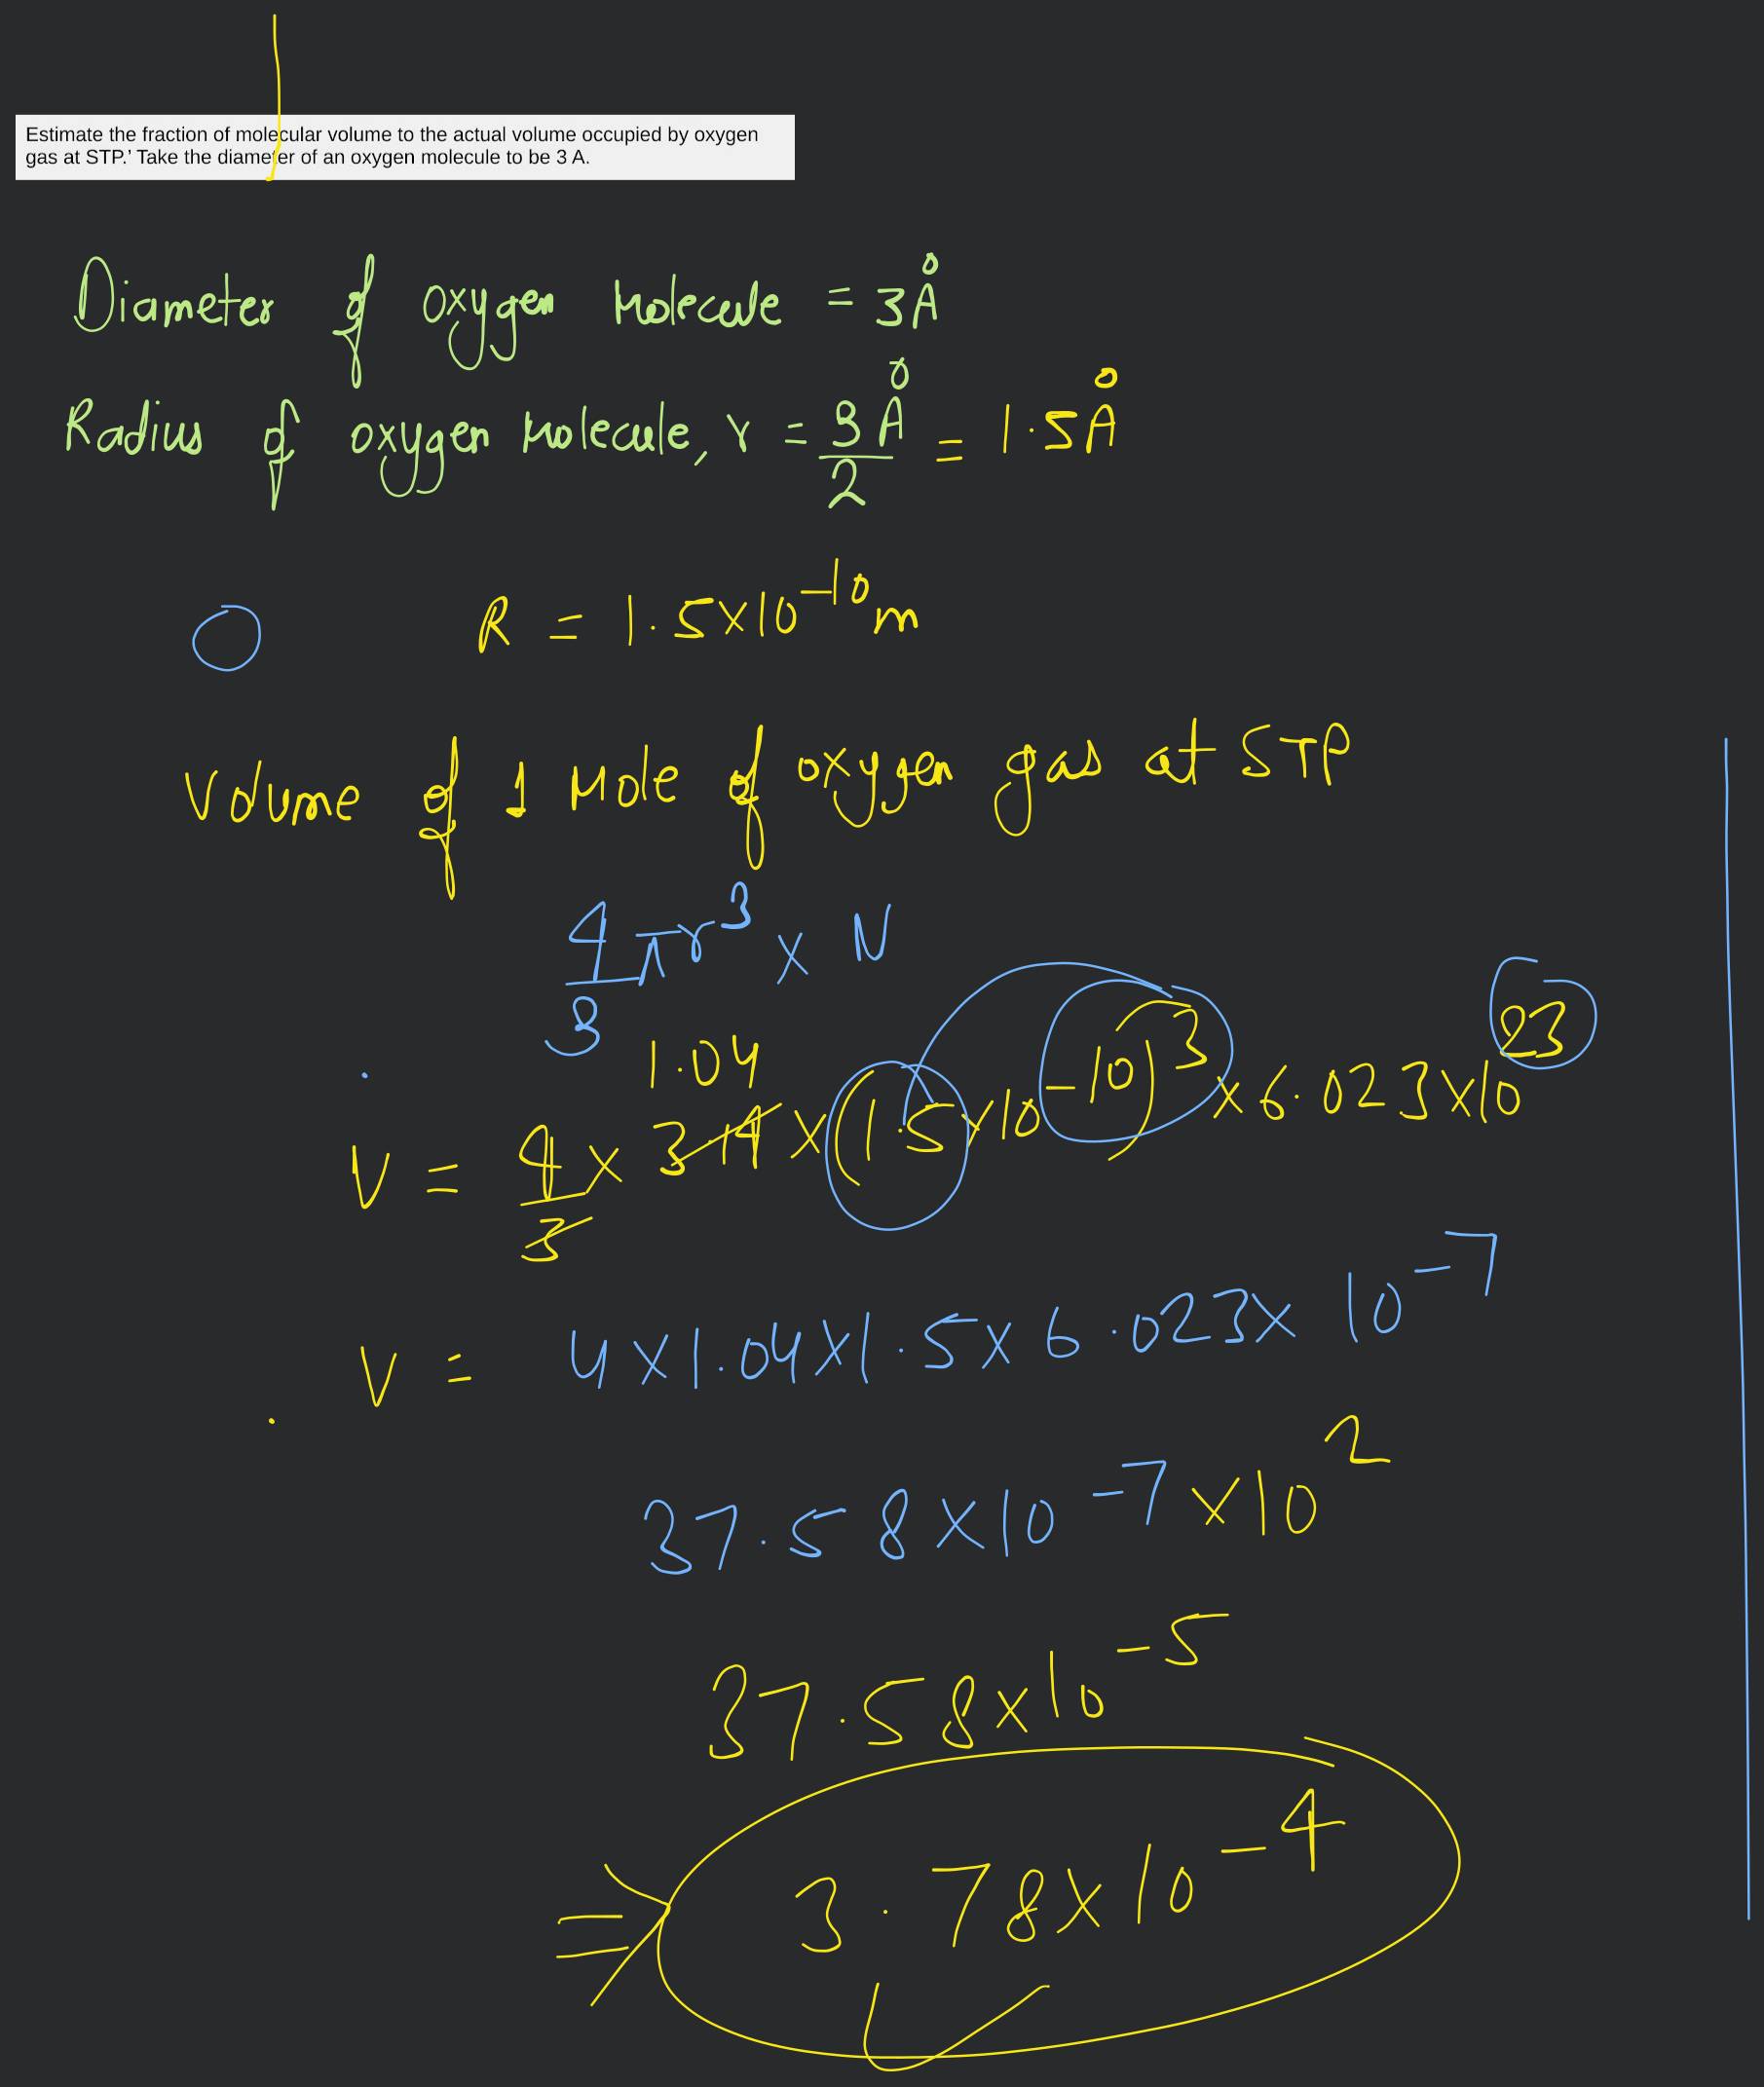 Estimate the fraction of molecular volume to the actual volume occupied by oxygen
gas at STP.’ Take the diameter of an oxygen molecule to be 3 A.
Diameter of oxygen Molecule = 3Å
Radius of oxygen Molecule, r = 3Å/2 = 1.5Å
R = 1.5×10⁻¹⁰m
Volume of 1 Mole of oxygen gas at STP
4/3 πr³ × N
1.04
V = 4/3 × 3.14 × (1.5×10⁻¹⁰)³ × 6.023×10²³
V = 4×1.04×1.5×6.023×10⁻⁷
37.58×10⁻⁷×10²
37.58×10⁻⁵
⇒ 3.78×10⁻⁴